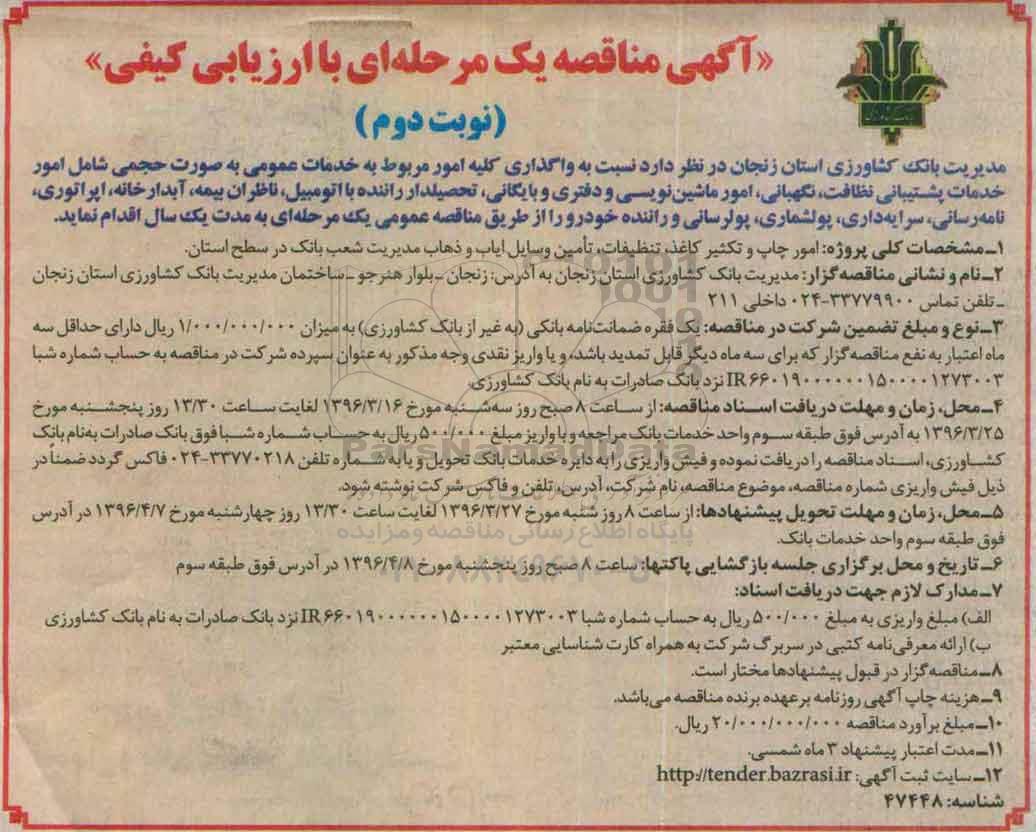 «آگهی مناقصه یک مرحله‌ای با ارزیابی کیفی»
(نوبت دوم)
مدیریت بانک کشاورزی استان زنجان در نظر دارد نسبت به واگذاری کلیه امور مربوط به خدمات عمومی به صورت حجمی شامل امور
خدمات پشتیبانی نظافت، نگهبانی، امور ماشین‌نویسی و دفتری و بایگانی، تحصیلدار راننده با اتومبیل، ناظران بیمه، آبدارخانه، اپراتوری،
نامه‌رسانی، سرایه‌داری، پولشماری، پولرسانی و راننده خودرو را از طریق مناقصه عمومی یک مرحله‌ای به مدت یک سال اقدام نماید.
۱ـ مشخصات کلی پروژه: امور چاپ و تکثیر کاغذ، تنظیفات، تأمین وسایل ایاب و ذهاب مدیریت شعب بانک در سطح استان.
۲ـ نام و نشانی مناقصه‌گزار: مدیریت بانک کشاورزی استان زنجان به آدرس: زنجان ـ بلوار هنرجو ـ ساختمان مدیریت بانک کشاورزی استان زنجان
ـ تلفن تماس ۳۳۷۷۹۹۰۰-۰۲۴ داخلی ۲۱۱
۳ـ نوع و مبلغ تضمین شرکت در مناقصه: یک فقره ضمانت‌نامه بانکی (به غیر از بانک کشاورزی) به میزان ۱/۰۰۰/۰۰۰/۰۰۰ ریال دارای حداقل سه
ماه اعتبار به نفع مناقصه‌گزار که برای سه ماه دیگر قابل تمدید باشد، و یا واریز نقدی وجه مذکور به عنوان سپرده شرکت در مناقصه به حساب شماره شبا
IR۶۶۰۱۹۰۰۰۰۰۰۰۱۵۰۰۰۰۱۲۷۳۰۰۳ نزد بانک صادرات به نام بانک کشاورزی.
۴ـ محل، زمان و مهلت دریافت اسناد مناقصه: از ساعت ۸ صبح روز سه‌شنبه مورخ ۱۳۹۶/۳/۱۶ لغایت ساعت ۱۳/۳۰ روز پنجشنبه مورخ
۱۳۹۶/۳/۲۵ به آدرس فوق طبقه سوم واحد خدمات بانک مراجعه و با واریز مبلغ ۵۰۰/۰۰۰ ریال به حساب شماره شبا فوق بانک صادرات به‌نام بانک
کشاورزی، اسناد مناقصه را دریافت نموده و فیش واریزی را به دایره خدمات بانک تحویل و یا به شماره تلفن ۳۳۷۷۰۲۱۸-۰۲۴ فاکس گردد ضمناً در
ذیل فیش واریزی شماره مناقصه، موضوع مناقصه، نام شرکت، آدرس، تلفن و فاکس شرکت نوشته شود.
۵ـ محل، زمان و مهلت تحویل پیشنهادها: از ساعت ۸ روز شنبه مورخ ۱۳۹۶/۳/۲۷ لغایت ساعت ۱۳/۳۰ روز چهارشنبه مورخ ۱۳۹۶/۴/۷ در آدرس
فوق طبقه سوم واحد خدمات بانک.
۶ـ تاریخ و محل برگزاری جلسه بازگشایی پاکتها: ساعت ۸ صبح روز پنجشنبه مورخ ۱۳۹۶/۴/۸ در آدرس فوق طبقه سوم
۷ـ مدارک لازم جهت دریافت اسناد:
الف) مبلغ واریزی به مبلغ ۵۰۰/۰۰۰ ریال به حساب شماره شبا IR۶۶۰۱۹۰۰۰۰۰۰۰۱۵۰۰۰۰۱۲۷۳۰۰۳ نزد بانک صادرات به نام بانک کشاورزی
ب) ارائه معرفی‌نامه کتبی در سربرگ شرکت به همراه کارت شناسایی معتبر
۸ـ مناقصه‌گزار در قبول پیشنهادها مختار است.
۹ـ هزینه چاپ آگهی روزنامه برعهده برنده مناقصه می‌باشد.
۱۰ـ مبلغ برآورد مناقصه ۲۰/۰۰۰/۰۰۰/۰۰۰ ریال.
۱۱ـ مدت اعتبار پیشنهاد ۳ ماه شمسی.
۱۲ـ سایت ثبت آگهی: http://tender.bazrasi.ir
شناسه: ۴۷۴۴۸
ParsNamadData
پایگاه اطلاع رسانی مناقصه و مزایده